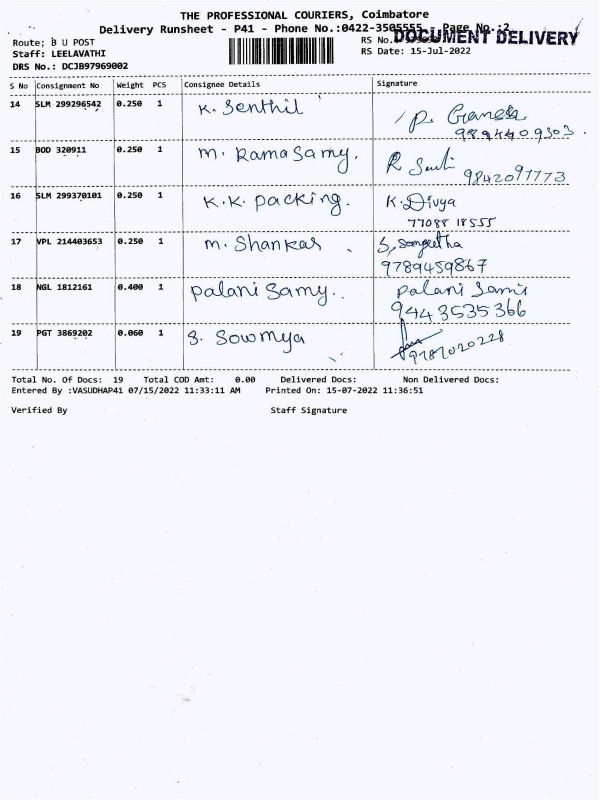 THE PROFESSIONAL COURIERS, Coimbatore
Delivery Runsheet - P41 - Phone No.:0422-3505555 - Page No.:2
Route; B U POST
RS No.
DOCUMENT DELIVERY
Staff: LEELAVATHI
RS Date: 15-Jul-2022
DRS No.: DCJB97969002
S No Consignment No Weight PCS Consignee Details Signature
14 SLM 299296542 0.250 1 K. Senthil P. Ganesh
9894409303.
15 BOD 320911 0.250 1 M. Ramasamy. R
9842097773
16 SLM 299370101 0.250 1 K.K. packing. K. Divya
77088 18555
17 VPL 214403653 0.250 1 M. Shankar S. Sangeetha
9789459867
18 NGL 1812161 0.400 1 Palani Samy. Palani Sami
9443535366
19 PGT 3869202 0.060 1 S. Sowmya
9787020228
Total No. Of Docs: 19 Total COD Amt: 0.00 Delivered Docs: Non Delivered Docs:
Entered By :VASUDHAP41 07/15/2022 11:33:11 AM Printed On: 15-07-2022 11:36:51
Verified By Staff Signature